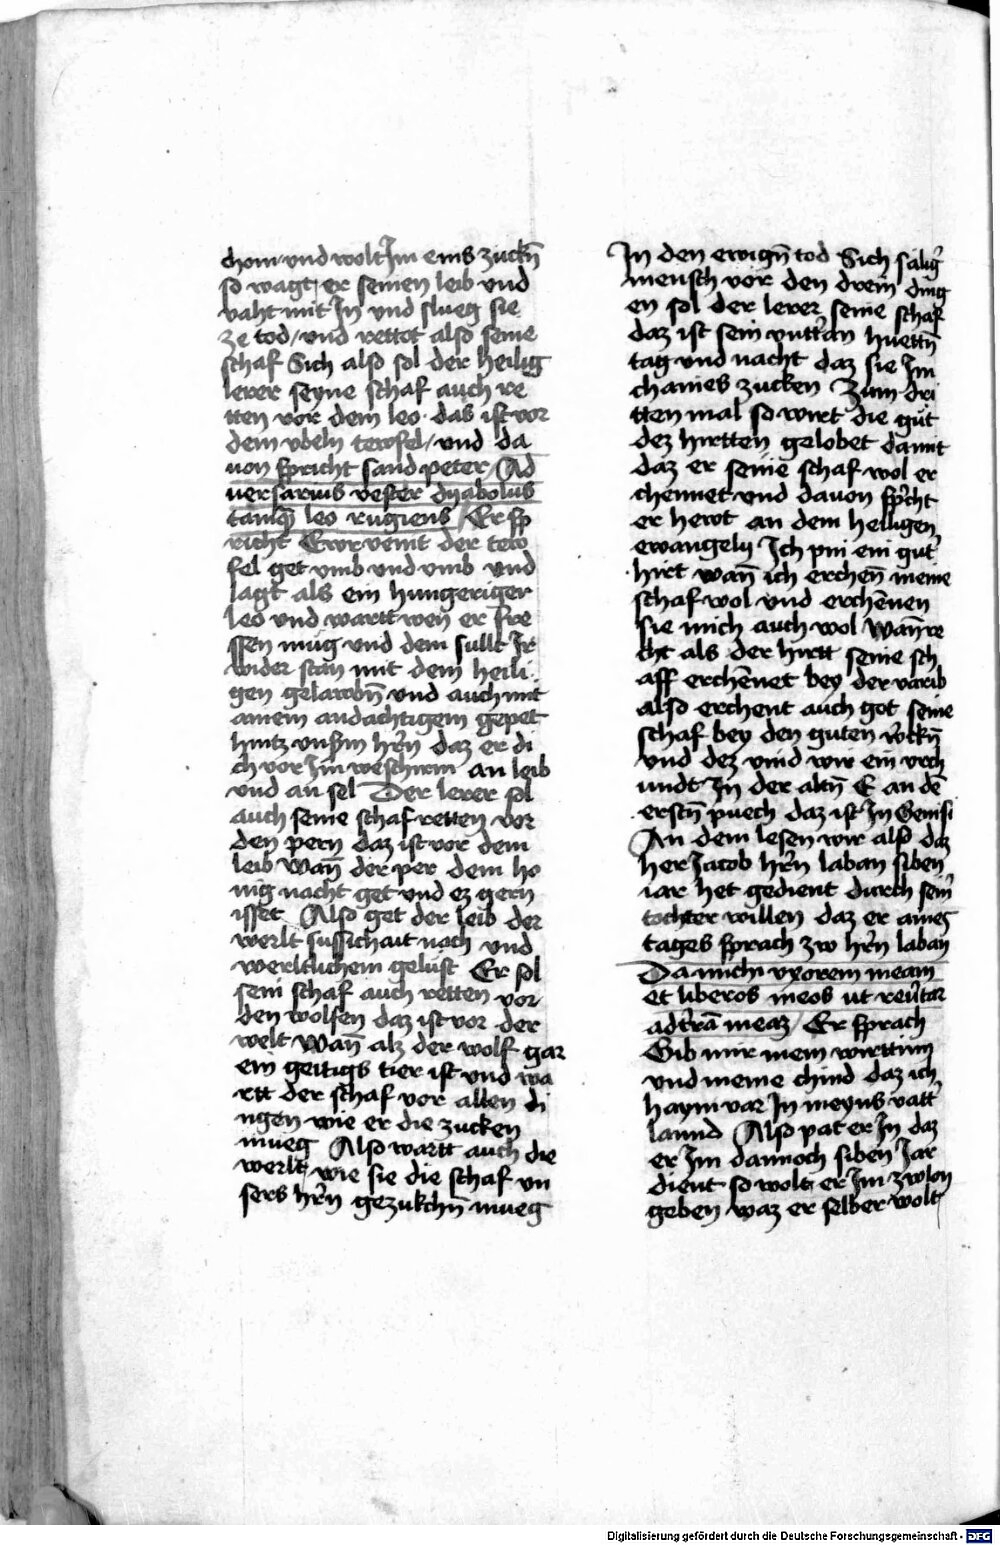 chom und wolt Im eins zuckn̄
so wagt er seinen leib vnd
vaht mit In vnd slueg sie
ze tod / vnd rettot also seine
schaf Sich also sol der heilig
lerer seyne schaf auch re
tten vor dem leo das ist vor
dem vbeln tewfel / vnd da
uon spricht sand peter / Ad
uersarius vester dyabolus
tamq̄ leo rugiens / Er sp
richt Ewr veint der tew
fel get vmb vnd vmb vnd
lagt als ein hungeriger
leo vnd wartt wen er fre
ssen mug vnd dem sullt Ir
wider stan mit dem heili
gen gelawbn̄ vnd auch mit
ainem andachtigem gepet
hintz vnsm hr̄n daz er di
ch vor Im weschirm an leib
vnd an sel Der lerer sol
auch seine schaf retten vor
den pern daz ist vor dem
leib Wan̄ der per dem ho
nig nacht get vnd ez gern
isset Also get der leib der
werlt sussichait nach vnd
werltlichem gelust Er sol
sein schaf auch retten vor
den wolfen daz ist vor der
welt Wan̄ alz der wolf gar
ein geitigs tier ist vnd wa
rtt der schaf vor allen di
ngen wie er die zucken
mueg Also wartt auch die
werlt wie sie die schaf vn
sers hr̄n gezukchn̄ mueg
In den ewign̄ tod Sich salig̾
mensch vor den drein ding
en sol der lerer seine schaf
daz ist sein vntt̾an huettn̄
tag vnd nacht daz sie Im
chaines zucken Zum dri
tten mal so wirt die güt
dez hirtten gelobet damit
daz er seine schaf wol er
chennet vnd dauon sp̾cht
er hewt an dem heiligen
ewangelij Ich pin ein gut̾
hirt wan̄ ich erchen̄ meine
schaf wol vnd erchēnen
sie mich auch wol Wan̄ re
cht als der hirtt seine sch
aff erchēnet bey der varib
also erchent auch got seine
schaf bey den guten w̾ckn̄
vnd dez vind wir ein vrch
undt In der altn̄ E an dē
erstn̄ puech daz ist In Genisi
An dem lesen wir also daz
her Jacob hr̄n laban siben
iar het gedient durch sein̾
tochter willen daz er aines
tages sprach zw hr̄n laban
Da michi vxorem meam
et liberos meos ut reu̾tar
ad t̾rā meaz / Er sprach
Gib mir mein wirttinn
vnd meine chind daz ich
haym var In meyns vatt̾
lannd Also pat er In daz
er Im dannoch siben Jar
dient so wolt er Im zwlon
geben waz er selber wolt
Digitalisierung gefördert durch die Deutsche Forschungsgemeinschaft - DFG